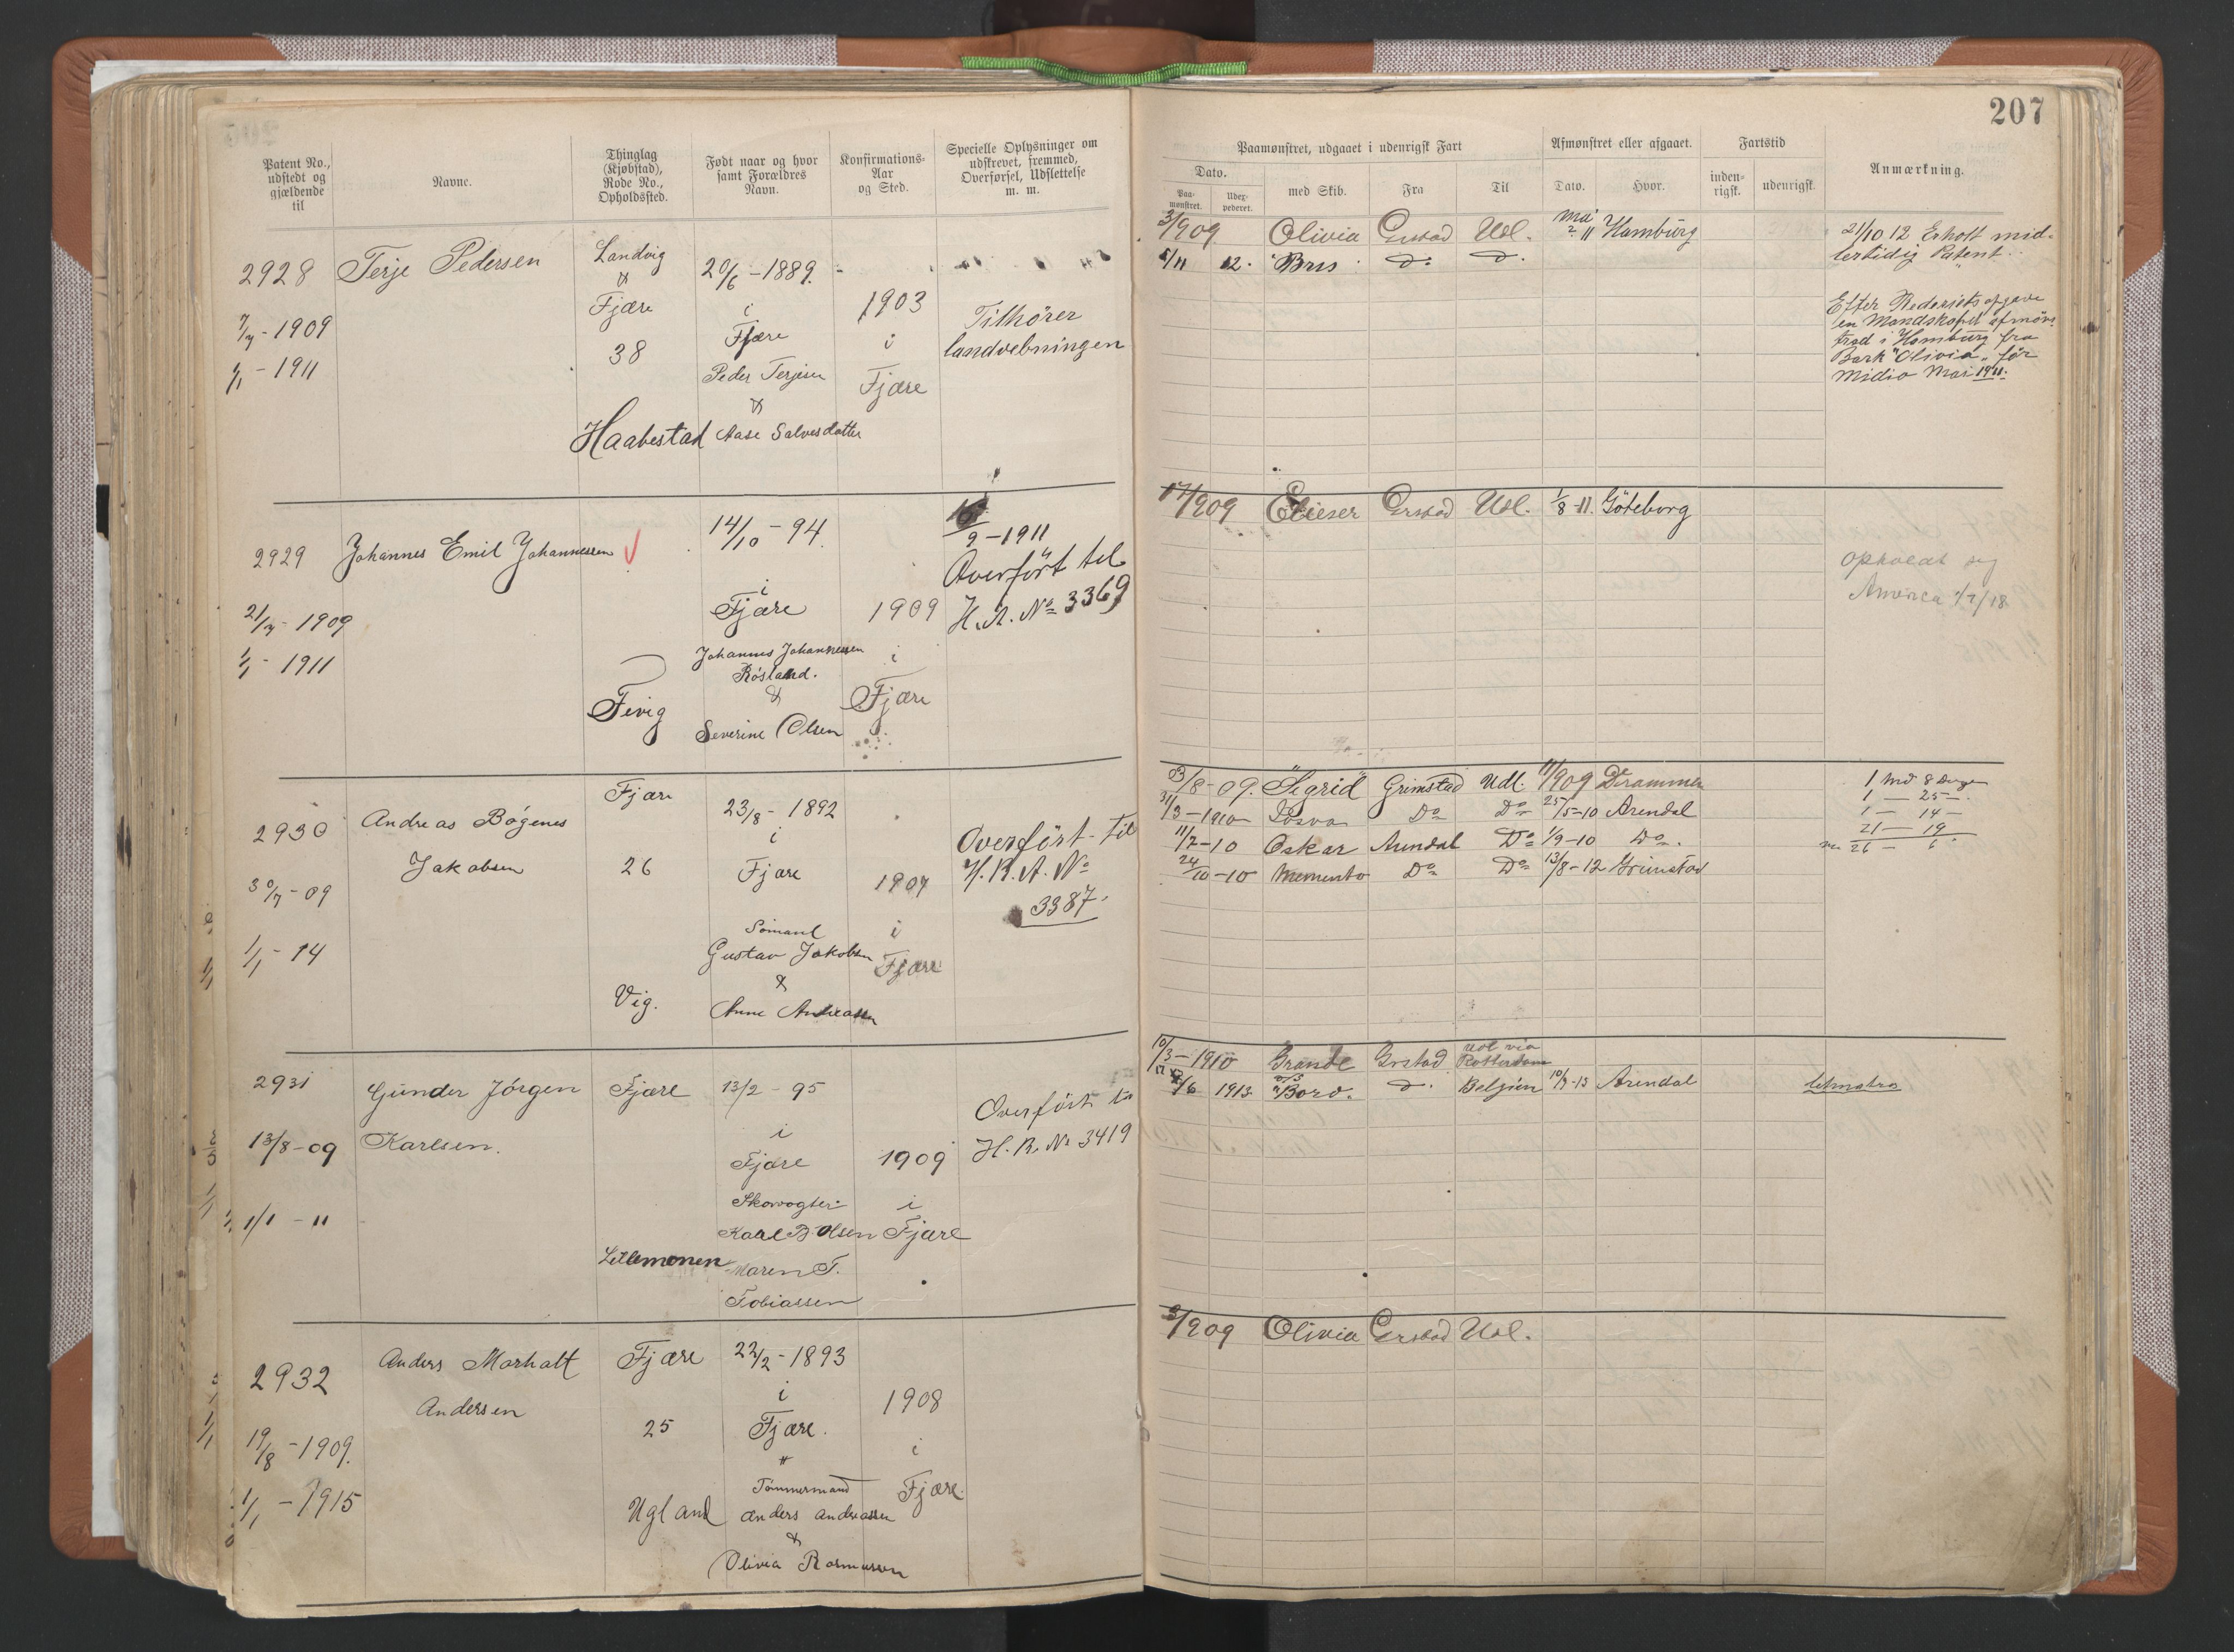 207
Patent No., udstedt og gjældende til
Navne.
Thinglag (Kjøbstad), Rode No., Opholdssted.
Født naar og hvor samt Forældres Navn.
Konfirmations-Aar og Sted.
Specielle Oplysninger om udskrevet, fremmed, Overførsel, Udslettelse m. m.
Paamønstret, udgaaet i udenrigsk Fart
Dato.
Paa-mønstret.
Udex-pederet.
med Skib.
Fra
Til
Afmønstret eller afgaaet.
Dato.
Hvor.
Fartstid
inden-rigsk.
udenrigsk.
Anmærkning.
2928
7/7 - 1909
1/1 - 1911
Terje Pedersen
Landvig
&
Fjære
38
Haabestad
20/6 - 1889.
i
Fjære
Peder Terjesen
&
Aase Salvesdatter
1903
i
Fjære
Tilhörer
landvebningen
3/909 Olivia Grstad Udl. Mai 11 Hamburg
5/11 12. Bris Do. Do.
21/10 12 Erholt mid-
lertidig Patent.
Efter Rederiets opgave
en Mandskabet afmöns
tred i Hamburg fra
Bark "Olivia" för
Midio Mai 1911.
2929
21/7 - 1909
1/1 - 1911
Johannes Emil Johannessen
Fevig
14/10 - 94.
i
Fjære
Johannes Johannessen
Rösland.
&
Severine Olsen
1909
i
Fjære
9 - 1911
Overfört til
H. R. No 3369
17/909 Elieser Grstad Udl. 1/8 - 11. Göteborg
Opholdt sig
America 1/7/18
2930
30/7 - 09
1/1 - 14
Andreas Bögenes
Jakobsen
Fjære
26
Vig.
23/8 - 1892
i
Fjære
Sömand
Gustav Jakobsen
&
Anne Andreassen
1907
i
Fjære
Overfört til
H. R. A. No
3387.
23/8 - 09. "Sigrid" Grimstad Udl. 11/909 Drammen
31/3 - 1910 Do Do 25/5 - 10 Arendal
11/7 - 10 Oskar Arendal Do 1/9 - 10 Do.
24/10 - 10 Memento Do Do 13/8 - 12 Grimstad
1 Md 8 Dage
1 — 25 —
1 — 14 —
21 — 19
26 — 6.
2931
13/8 - 09
1/1 - 11
Gunder Jörgen
Karlsen.
Fjære
Lillemonen
13/2 - 95
i
Fjære
Skovvogter
Karl B Olsen
Maren T.
Tobiassen
1909
i
Fjære
Overfört til
H. R. No 3419
10/3 - 1910 Grande Grstad Udl via
Rotterdam
/6 1913 D/S "Bord. Do. Belgien 10/9 - 13 Arendal
2932
19/8 - 1909.
1/1 - 1915
Anders Marholt
Andersen
Fjære
25
Ugland
22/2 - 1893
i
Fjære.
Tömmermand
Anders Andreassen
&
Olivia Rasmussen
1908
i
Fjære.
3/909 Olivia Grstad Udl.